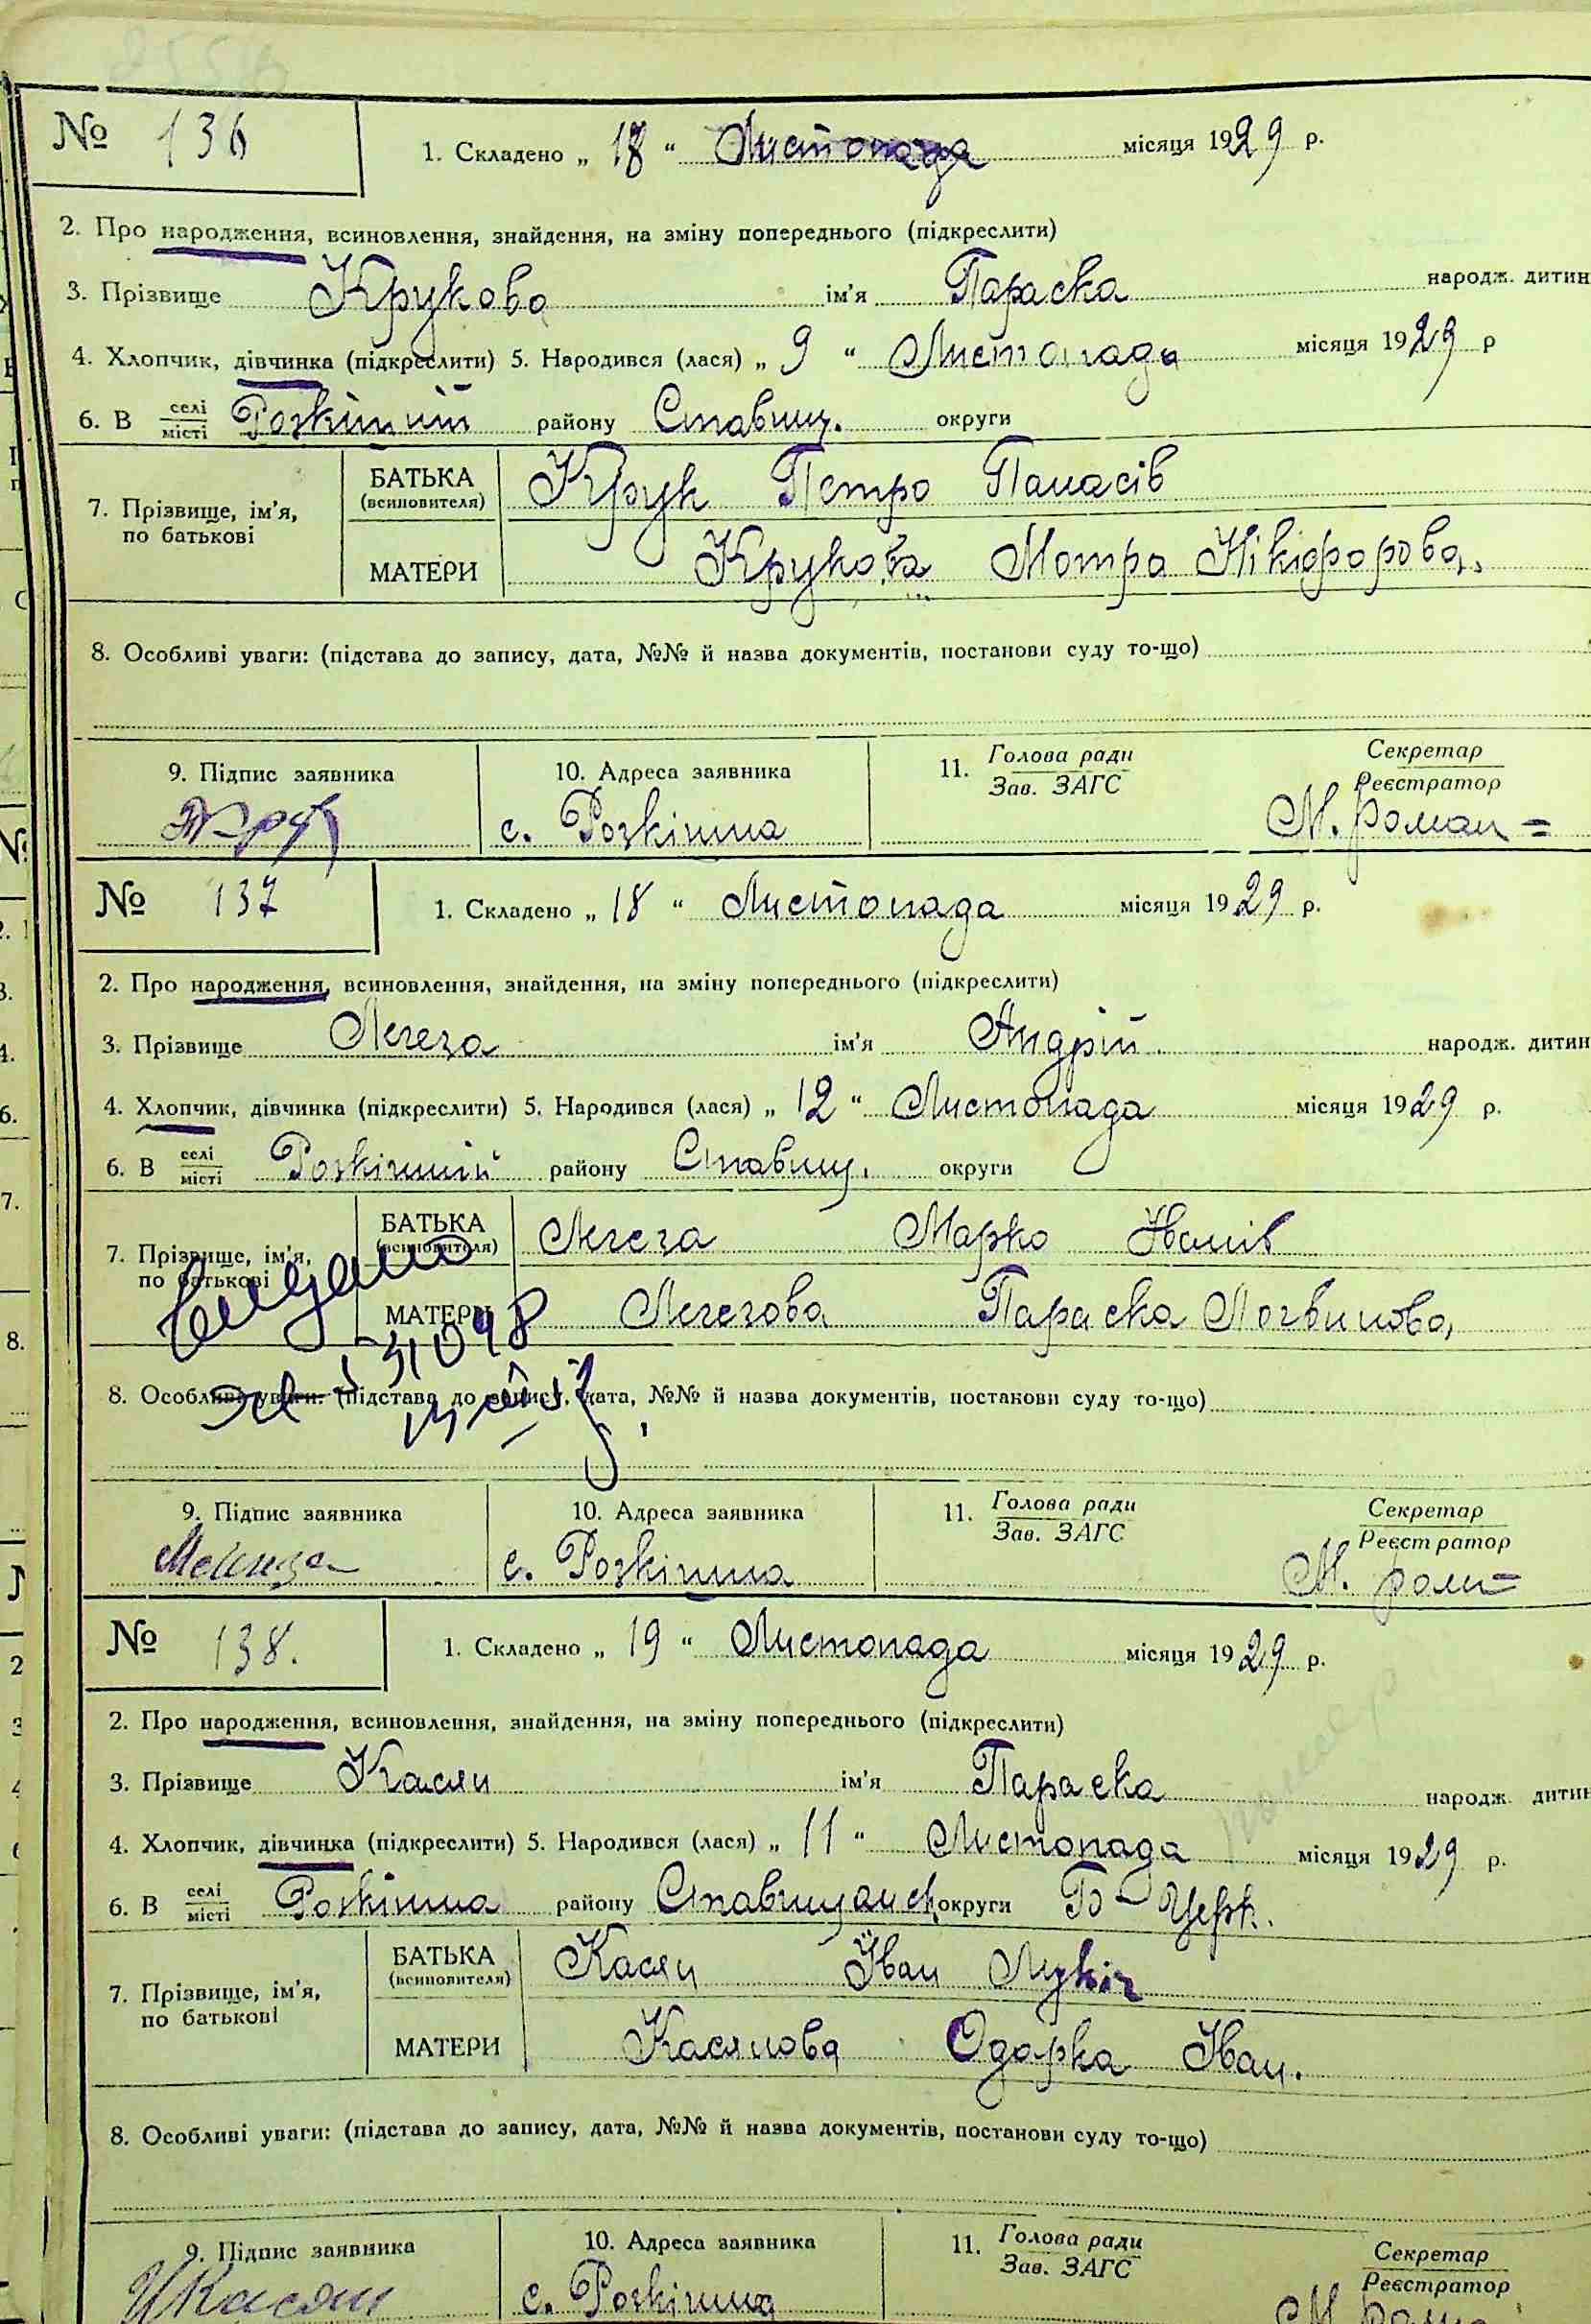 № 136
1. Складено „ 18 “ Листопада місяця 1929 р.
2. Про народження, всиновлення, знайдення, на зміну попереднього (підкреслити)
3. Прізвище Крукова ім'я Параска народж. дитин
4. Хлопчик, дівчинка (підкреслити) 5. Народився (лася) „ 9 “ Листопада місяця 1929 р
6. В селі/місті Розкішній району Ставищ. округи
7. Прізвище, ім'я, по батькові
БАТЬКА (всиновителя) Крук Петро Панасів
МАТЕРИ Крукова Мотра Нікіфорова,
8. Особливі уваги: (підстава до запису, дата, №№ й назва документів, постанови суду то-що)
9. Підпис заявника 10. Адреса заявника 11. Голова ради Секретар
Зав. ЗАГС Реєстратор
с. Розкішна М. Роман=
№ 137
1. Складено „ 18 “ Листопада місяця 1929 р.
2. Про народження, всиновлення, знайдення, на зміну попереднього (підкреслити)
3. Прізвище Легеза ім'я Андрій народж. дитин
4. Хлопчик, дівчинка (підкреслити) 5. Народився (лася) „ 12 “ Листопада місяця 1929 р.
6. В селі/місті Розкішній району Ставищ. округи
7. Прізвище, ім'я, по батькові
БАТЬКА (всиновителя) Легеза Марко Іванів
МАТЕРИ Легезова Параска Логвинова,
8. Особливі уваги: (підстава до запису, дата, №№ й назва документів, постанови суду то-що)
9. Підпис заявника 10. Адреса заявника 11. Голова ради Секретар
Зав. ЗАГС Реєстратор
с. Розкішна М. Ром=
№ 138.
1. Складено „ 19 “ Листопада місяця 1929 р.
2. Про народження, всиновлення, знайдення, на зміну попереднього (підкреслити)
3. Прізвище Касян ім'я Параска народж. дитин
4. Хлопчик, дівчинка (підкреслити) 5. Народився (лася) „ 11 “ Листопада місяця 1929 р.
6. В селі/місті Розкішна району Ставищанськ. округи Б-Церк.
7. Прізвище, ім'я, по батькові
БАТЬКА (всиновителя) Касян Іван Лукіч
МАТЕРИ Касянова Одарка Іван.
8. Особливі уваги: (підстава до запису, дата, №№ й назва документів, постанови суду то-що)
9. Підпис заявника 10. Адреса заявника 11. Голова ради Секретар
Зав. ЗАГС Реєстратор
ИКасян с. Розкішна